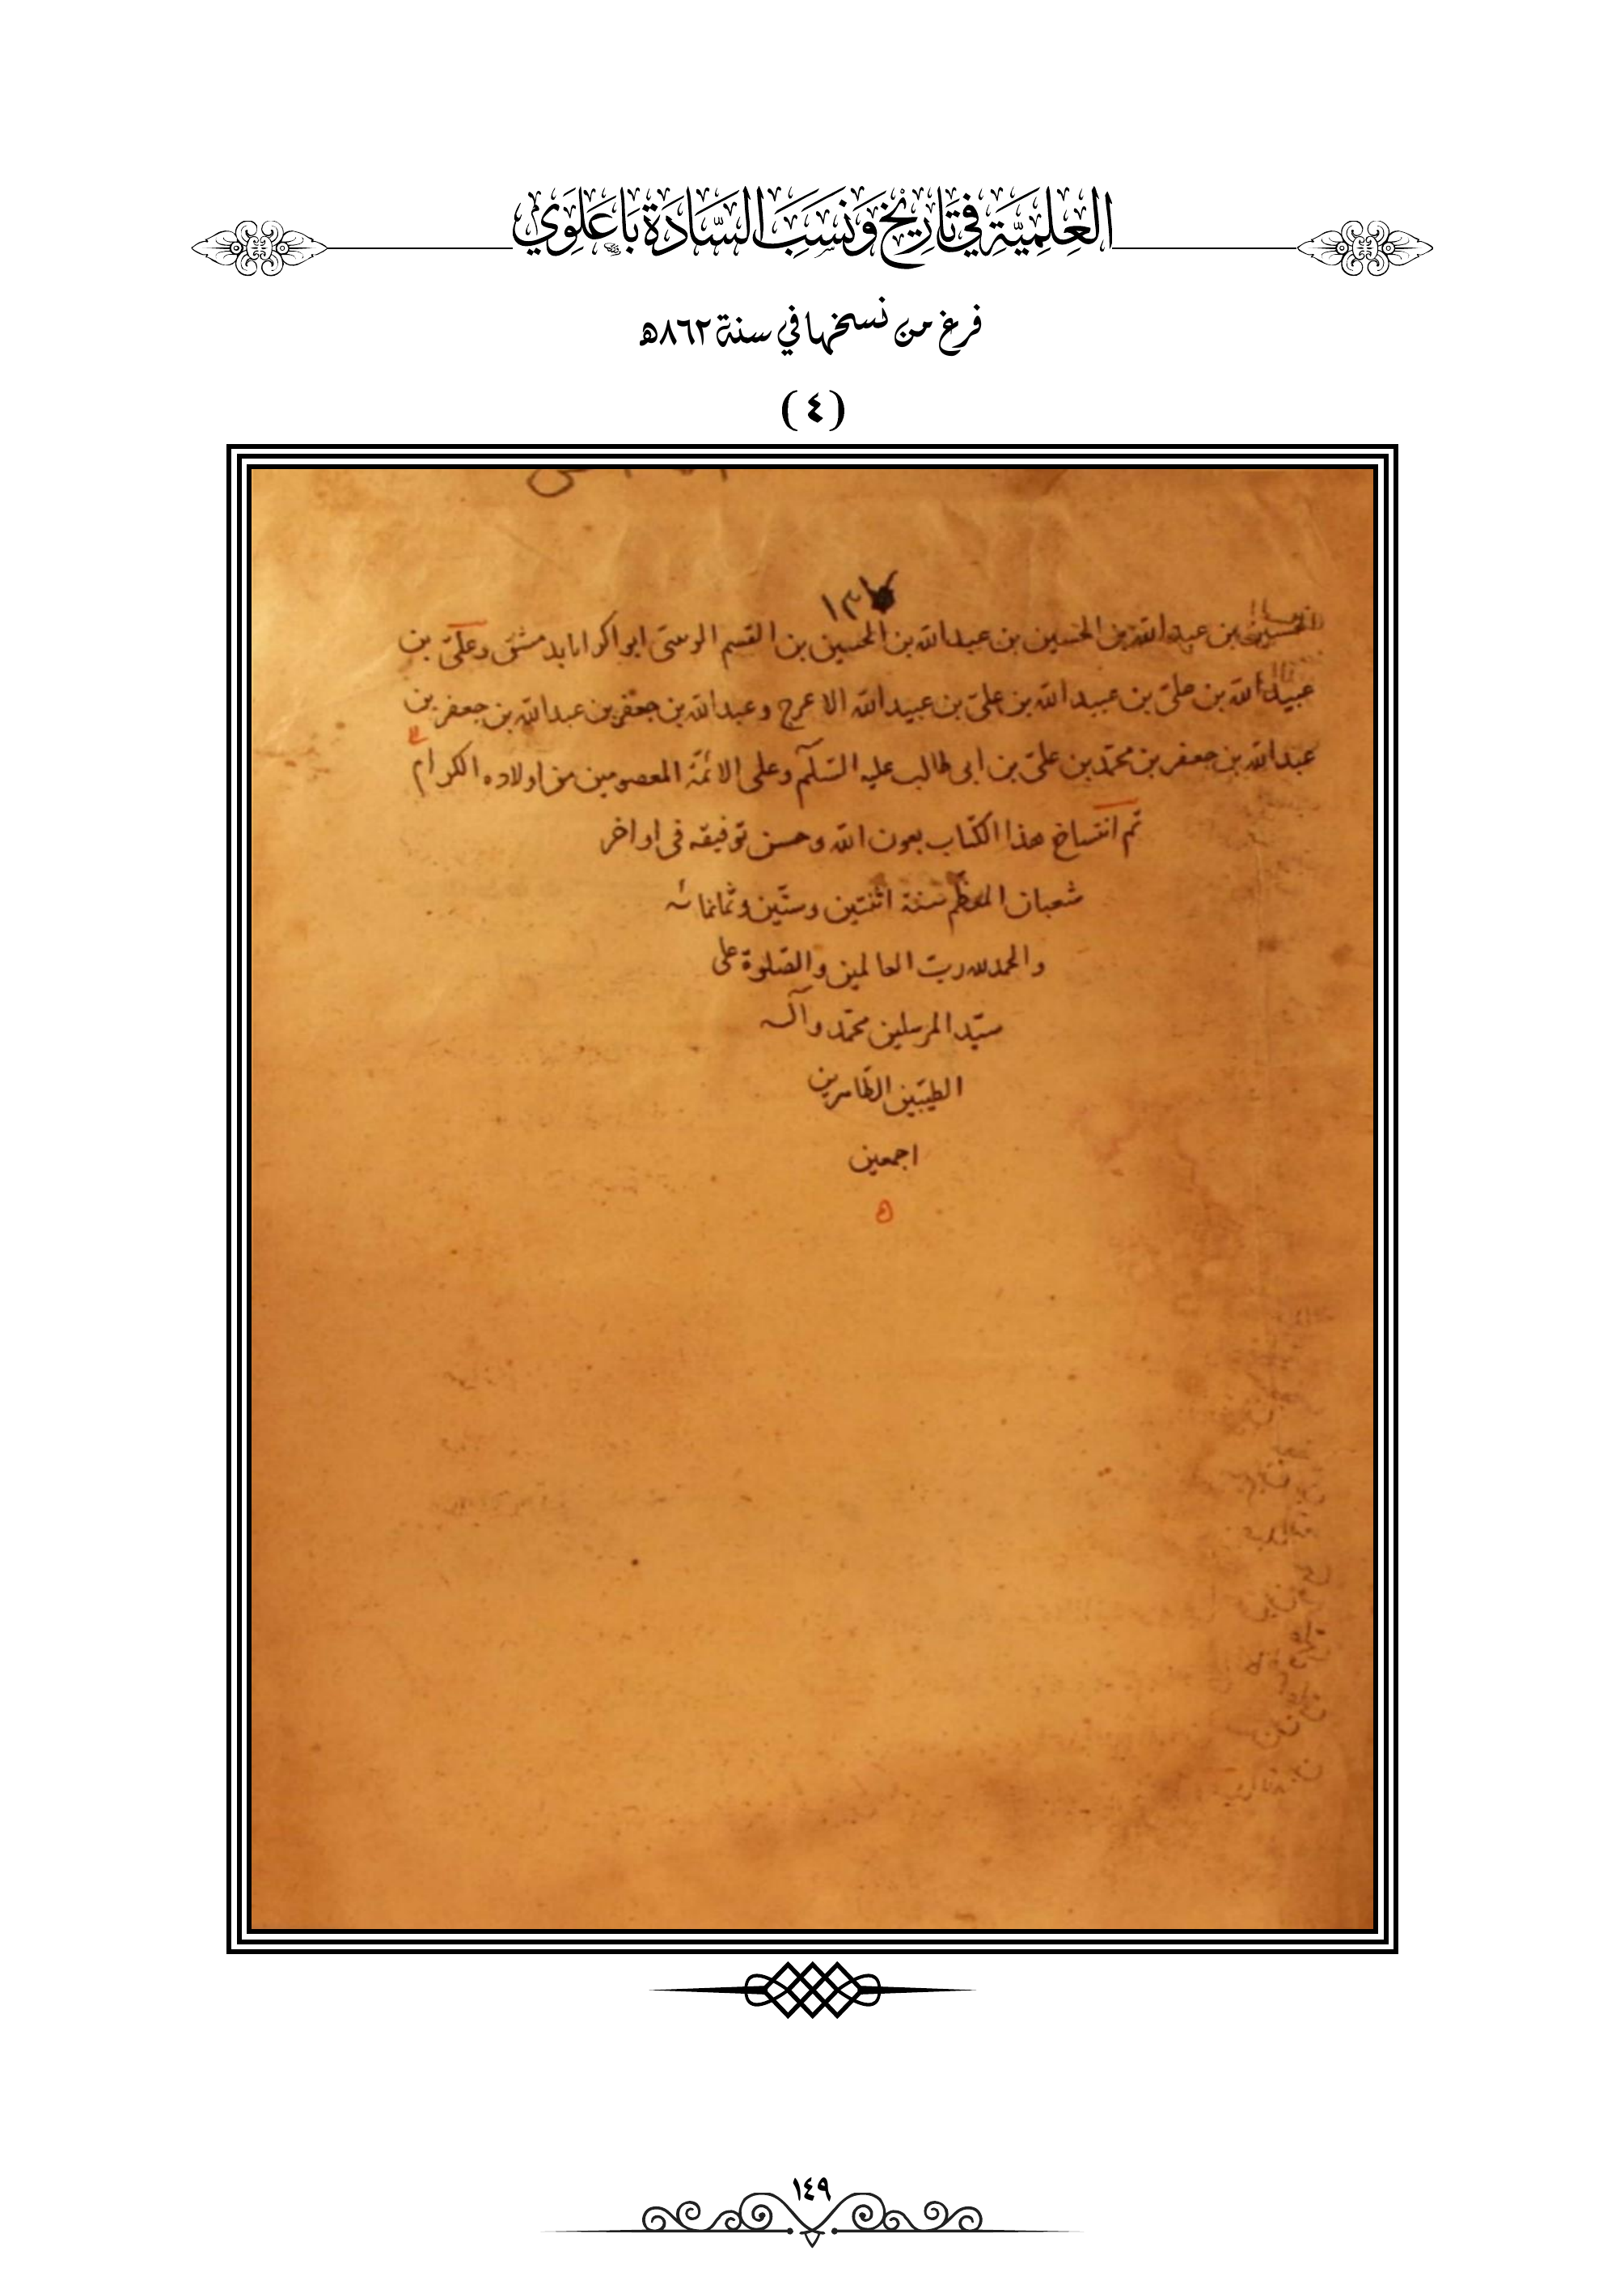 العِلمِيَّةِ في تَارِيْخِ وَنَسَبِ السَّادَةِ بَاعَلَوِي
فرغ من نسخها في سنة ٨٦٢هـ
(٤)
بن عبد الله بن الحسين بن عبد الله بن الحسين بن القسم الرسّى ابو اكرانا بدمشق وعلىّ بن
عبيد الله بن علىّ بن عبيد الله بن علىّ بن عبيد الله الاعرج وعبد الله بن جعفر بن عبد الله بن جعفر بن
عبد الله بن جعفر بن محمّد بن علىّ بن ابى طالب عليه السّلٰم وعلى الائمّة المعصومين من اولاده الكرام
تم انتساخ هذا الكتاب بعون الله وحسن توفيقه فى اواخر
شعبان المعظّم سنة اثنتين وستّين وثمانمائه
والحمد لله ربّ العالمين والصّلوة على
سيّد المرسلين محمّد وآله
الطيّبين الطّاهرين
اجمعين
ه
١٤٩